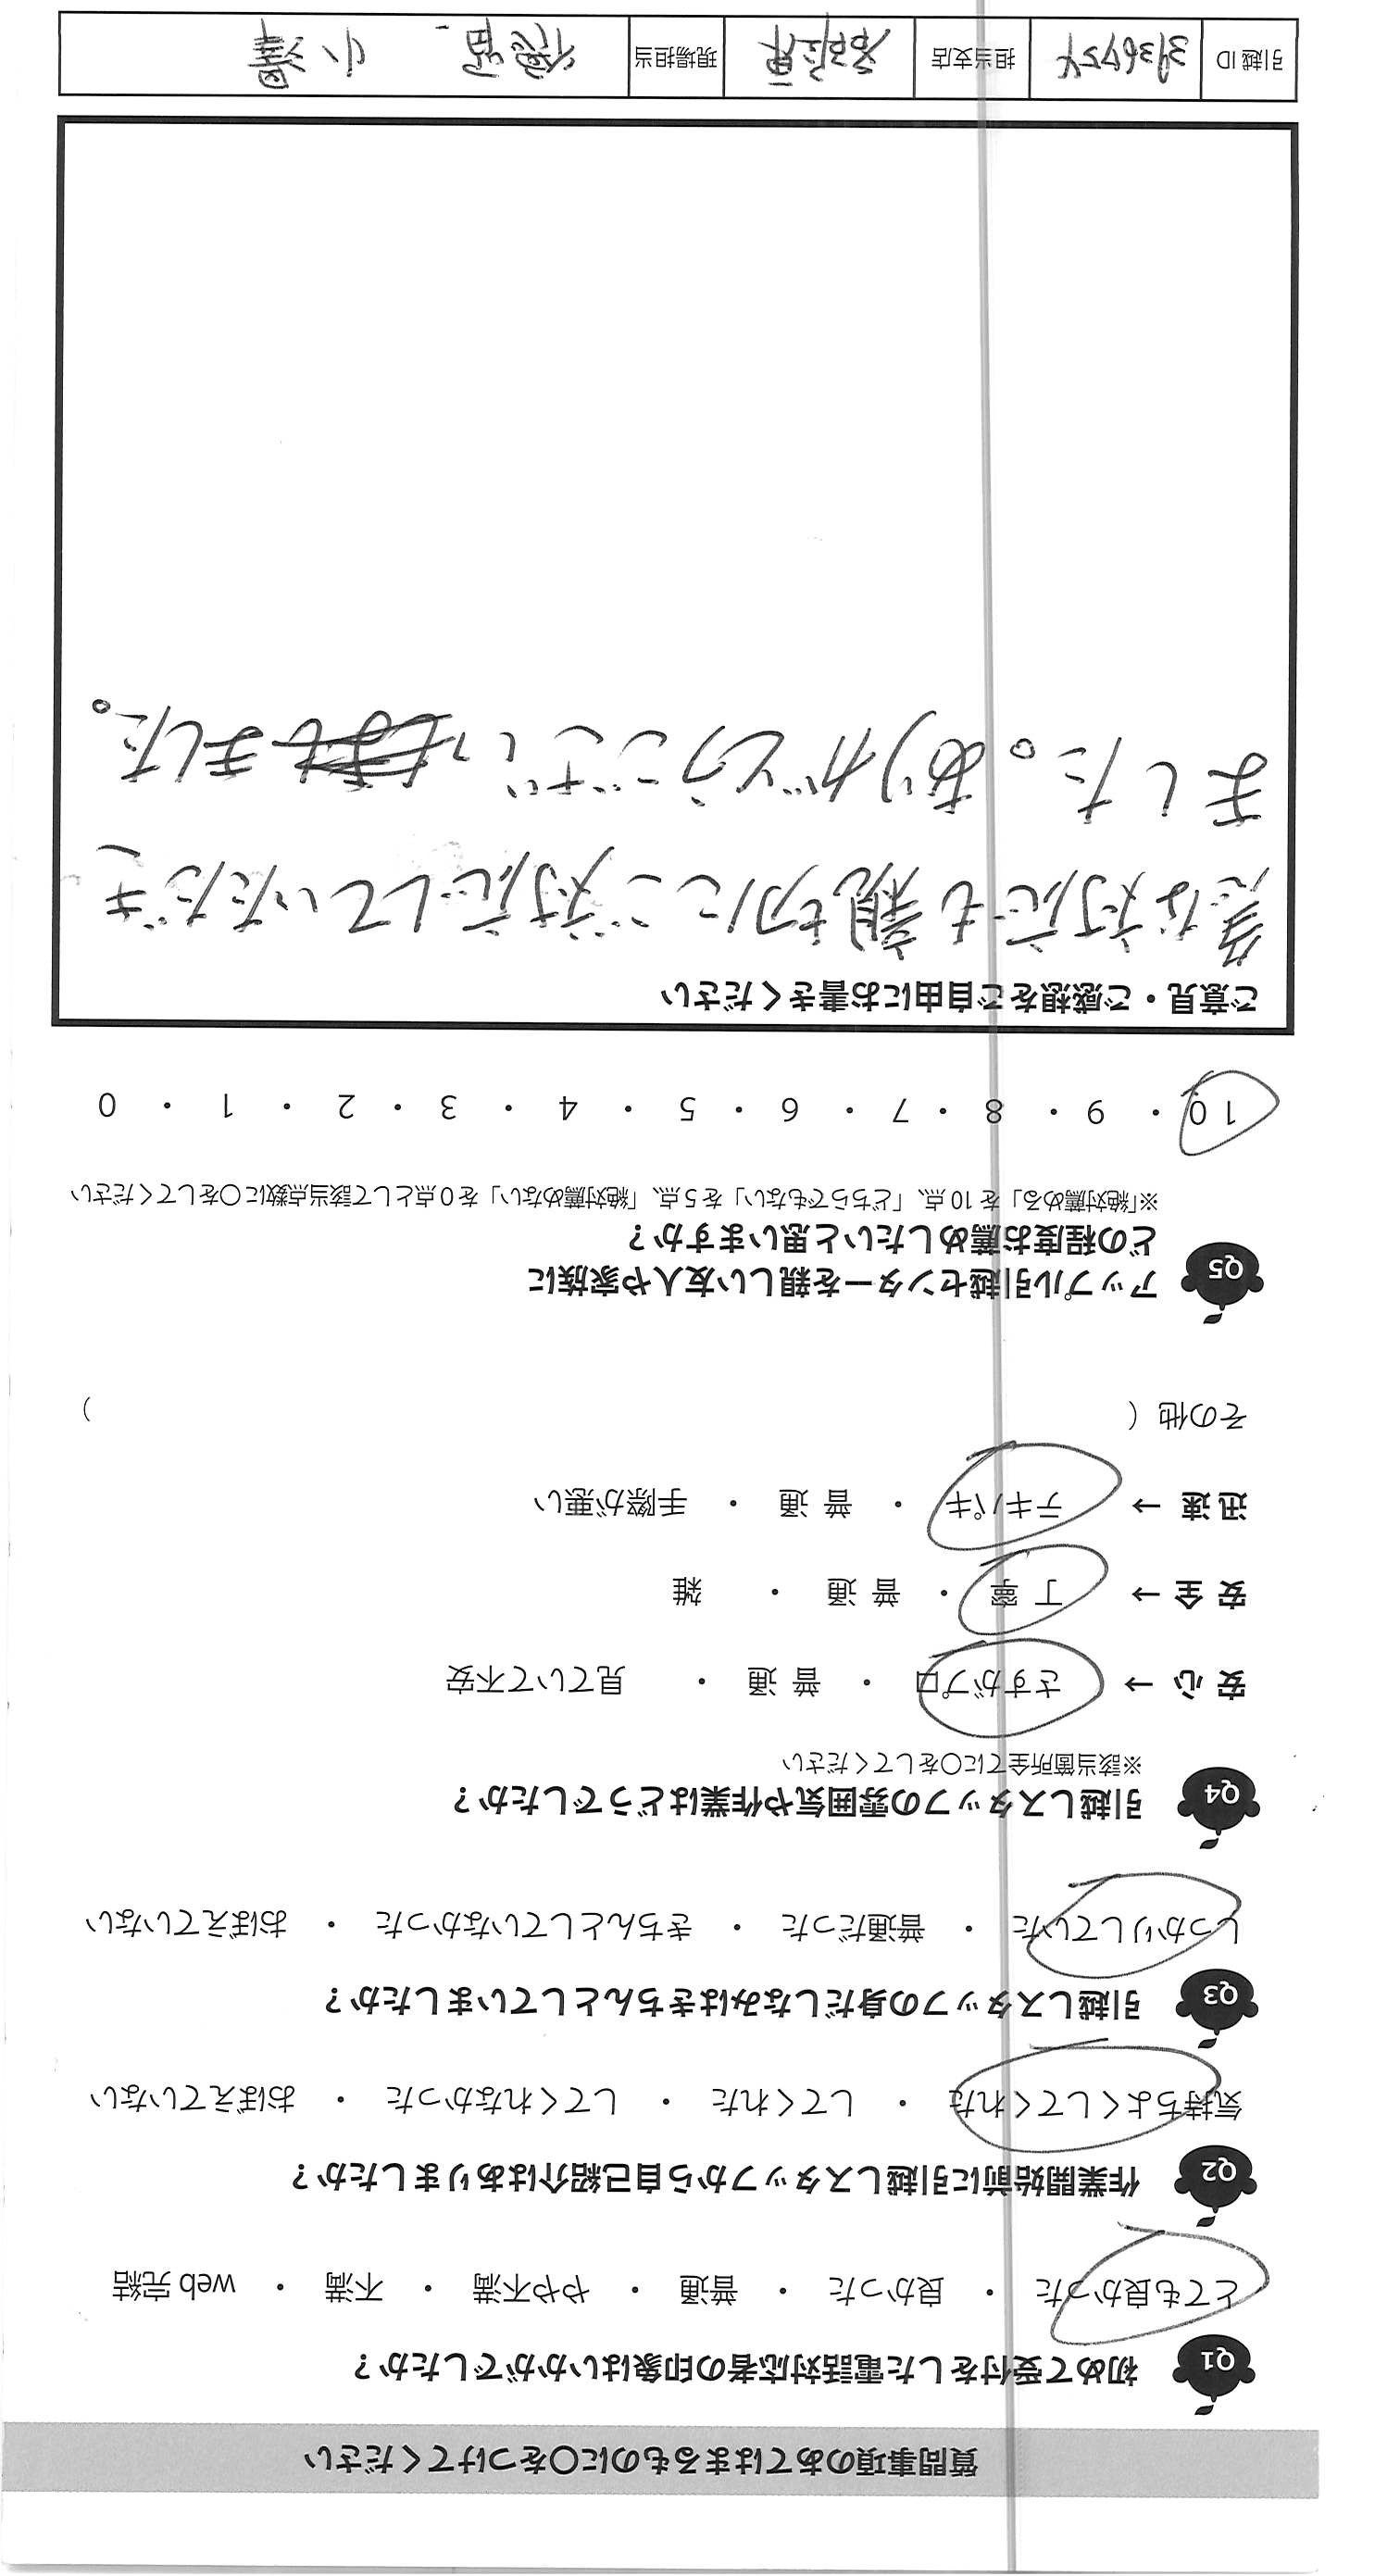 質問事項のあてはまるものに〇をつけてください
Q1 初めて受付をした電話対応者の印象はいかがでしたか？
とても良かった ・ 良かった ・ 普通 ・ やや不満 ・ 不満 ・ web 完結
Q2 作業開始前に引越しスタッフから自己紹介はありましたか？
気持ちよくしてくれた ・ してくれた ・ してくれなかった ・ おぼえていない
Q3 引越しスタッフの身だしなみはきちんとしていましたか？
しっかりしていた ・ 普通だった ・ きちんとしていなかった ・ おぼえていない
Q4 引越しスタッフの雰囲気や作業はどうでしたか？
※該当箇所全てに〇をしてください
安 心 → さすがプロ ・ 普 通 ・ 見ていて不安
安 全 → 丁 寧 ・ 普 通 ・ 雑
迅 速 → テキパキ ・ 普 通 ・ 手際が悪い
その他（ ）
Q5 アップル引越センターを親しい友人や家族に
どの程度お薦めしたいと思いますか？
※「絶対薦める」を 10 点、「どちらでもない」を 5 点、「絶対薦めない」を 0 点として該当点数に〇をしてください
10 ・ 9 ・ 8 ・ 7 ・ 6 ・ 5 ・ 4 ・ 3 ・ 2 ・ 1 ・ 0
ご意見・ご感想をご自由にお書きください
急な対応でも親切にご対応していただき
ました。ありがとうござい ました。
引越 ID 担当支店 現場担当 小澤